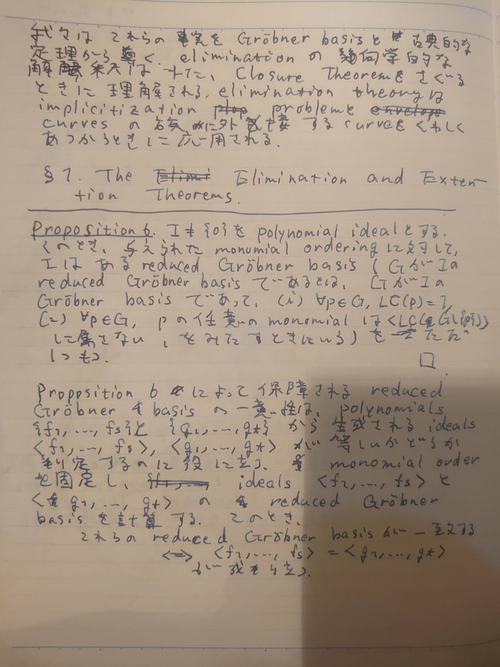 我々は これらの 事実を Gröbner basis と 古典的な
定理から導く elimination の 幾何学的な
解釈は また, Closure Theorem をさぐる
ときに 理解される. elimination theory は
implicitization problem と
curves の 族 に外接する curve を くわしく
あつかうときに 応用される.
§1. The Elimination and Exten-
tion Theorems.
Proposition 6. I ≠ {0} を polynomial ideal とする.
このとき, 与えられた monomial ordering に対して,
I は ある reduced Gröbner basis (G が I の
reduced Gröbner basis であるとは, G が I の
Gröbner basis であって, (i) ∀p∈G, LC(p)=1,
(2) ∀p∈G, p の 任意の monomial は
に属さない, をみたすときにいう) を ただ
1つもつ.
□
Proposition 6 によって 保障される reduced
Gröbner basis の 一意性は, polynomials
{f1, ..., fs} と {g1, ..., gt} から 生成される ideals
<f1, ..., fs>, <g1, ..., gt> が 等しいかどうか
判定するのに 役に立つ. monomial order
を固定し, ideals <f1, ..., fs> と
<g1, ..., gt> の reduced Gröbner
basis を 計算する. このとき,
これらの reduced Gröbner basis が 一致する
⇔ <f1, ..., fs> = <g1, ..., gt>
が 成り立つ.